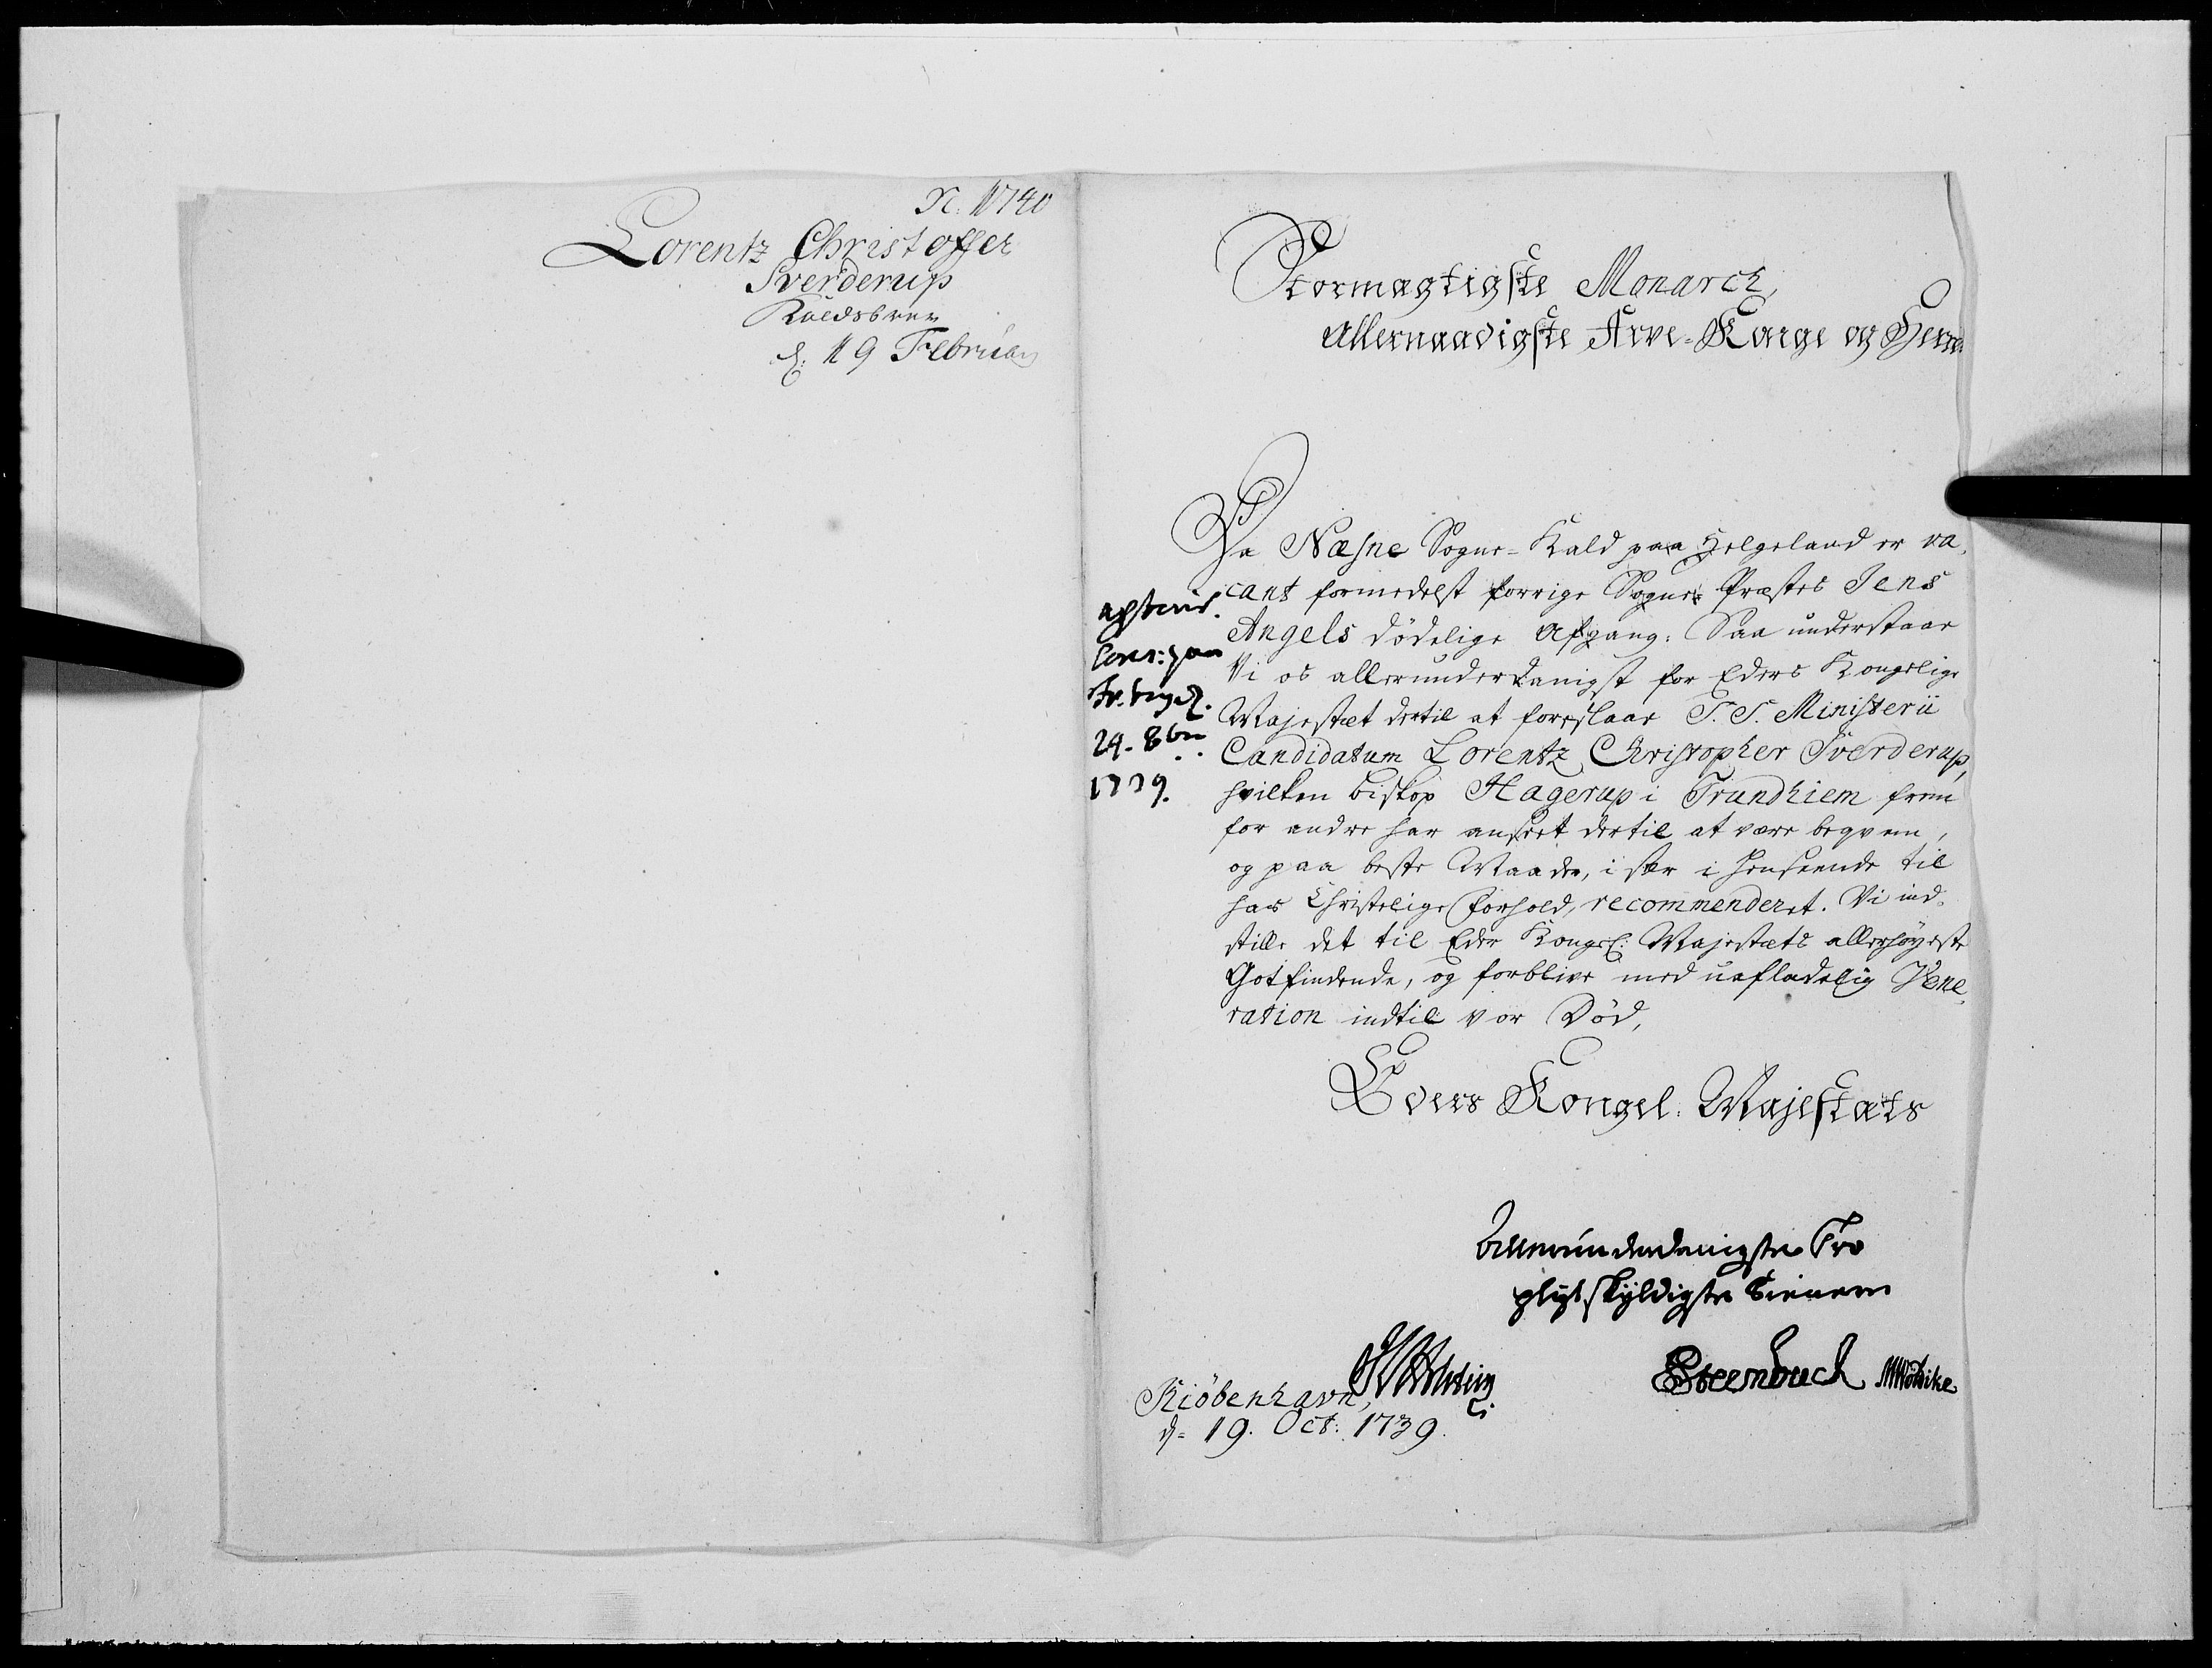 N. 1740
Lorentz Christoffer
Sverderup
Kaldsbrev
d: 19 Februar
Stormægtigste Monarch,
Allernaadigste Arve-Konge og Herre
Da Næsne Sogne-Kald paa Helgeland er va,
cant formedelst forrige Sogne-Præstes Jens
Angels dødelige Afgang: Saa understaar
Vi os allerunderdanigst for Eders Kongelige
Majestæt dertil at foreslaae S. S. Ministerii
Candidatum Lorentz Christopher Sverderup,
hvilken Biskop Hagerup i Trundhiem frem
for andre har anseet dertil at være beqvem,
og paa beste Maade, i sær i henseende til
hans Christelige Forhold, recommenderet. Vi ind-
stille det til Eder Kongel: Majestæts allerhøyeste
Gotfindende, og forblive med uafladelig Vene,
ration indtil vor Død,
Eders Kongel: Majestæts
24. 8br.
1739.
Allerunderdanigste Tro
pligtskyldigste Tienere
JLHolstein
Steenbuch MWøldike
Kiöbenhavn,
d= 19. Oct: 1739.